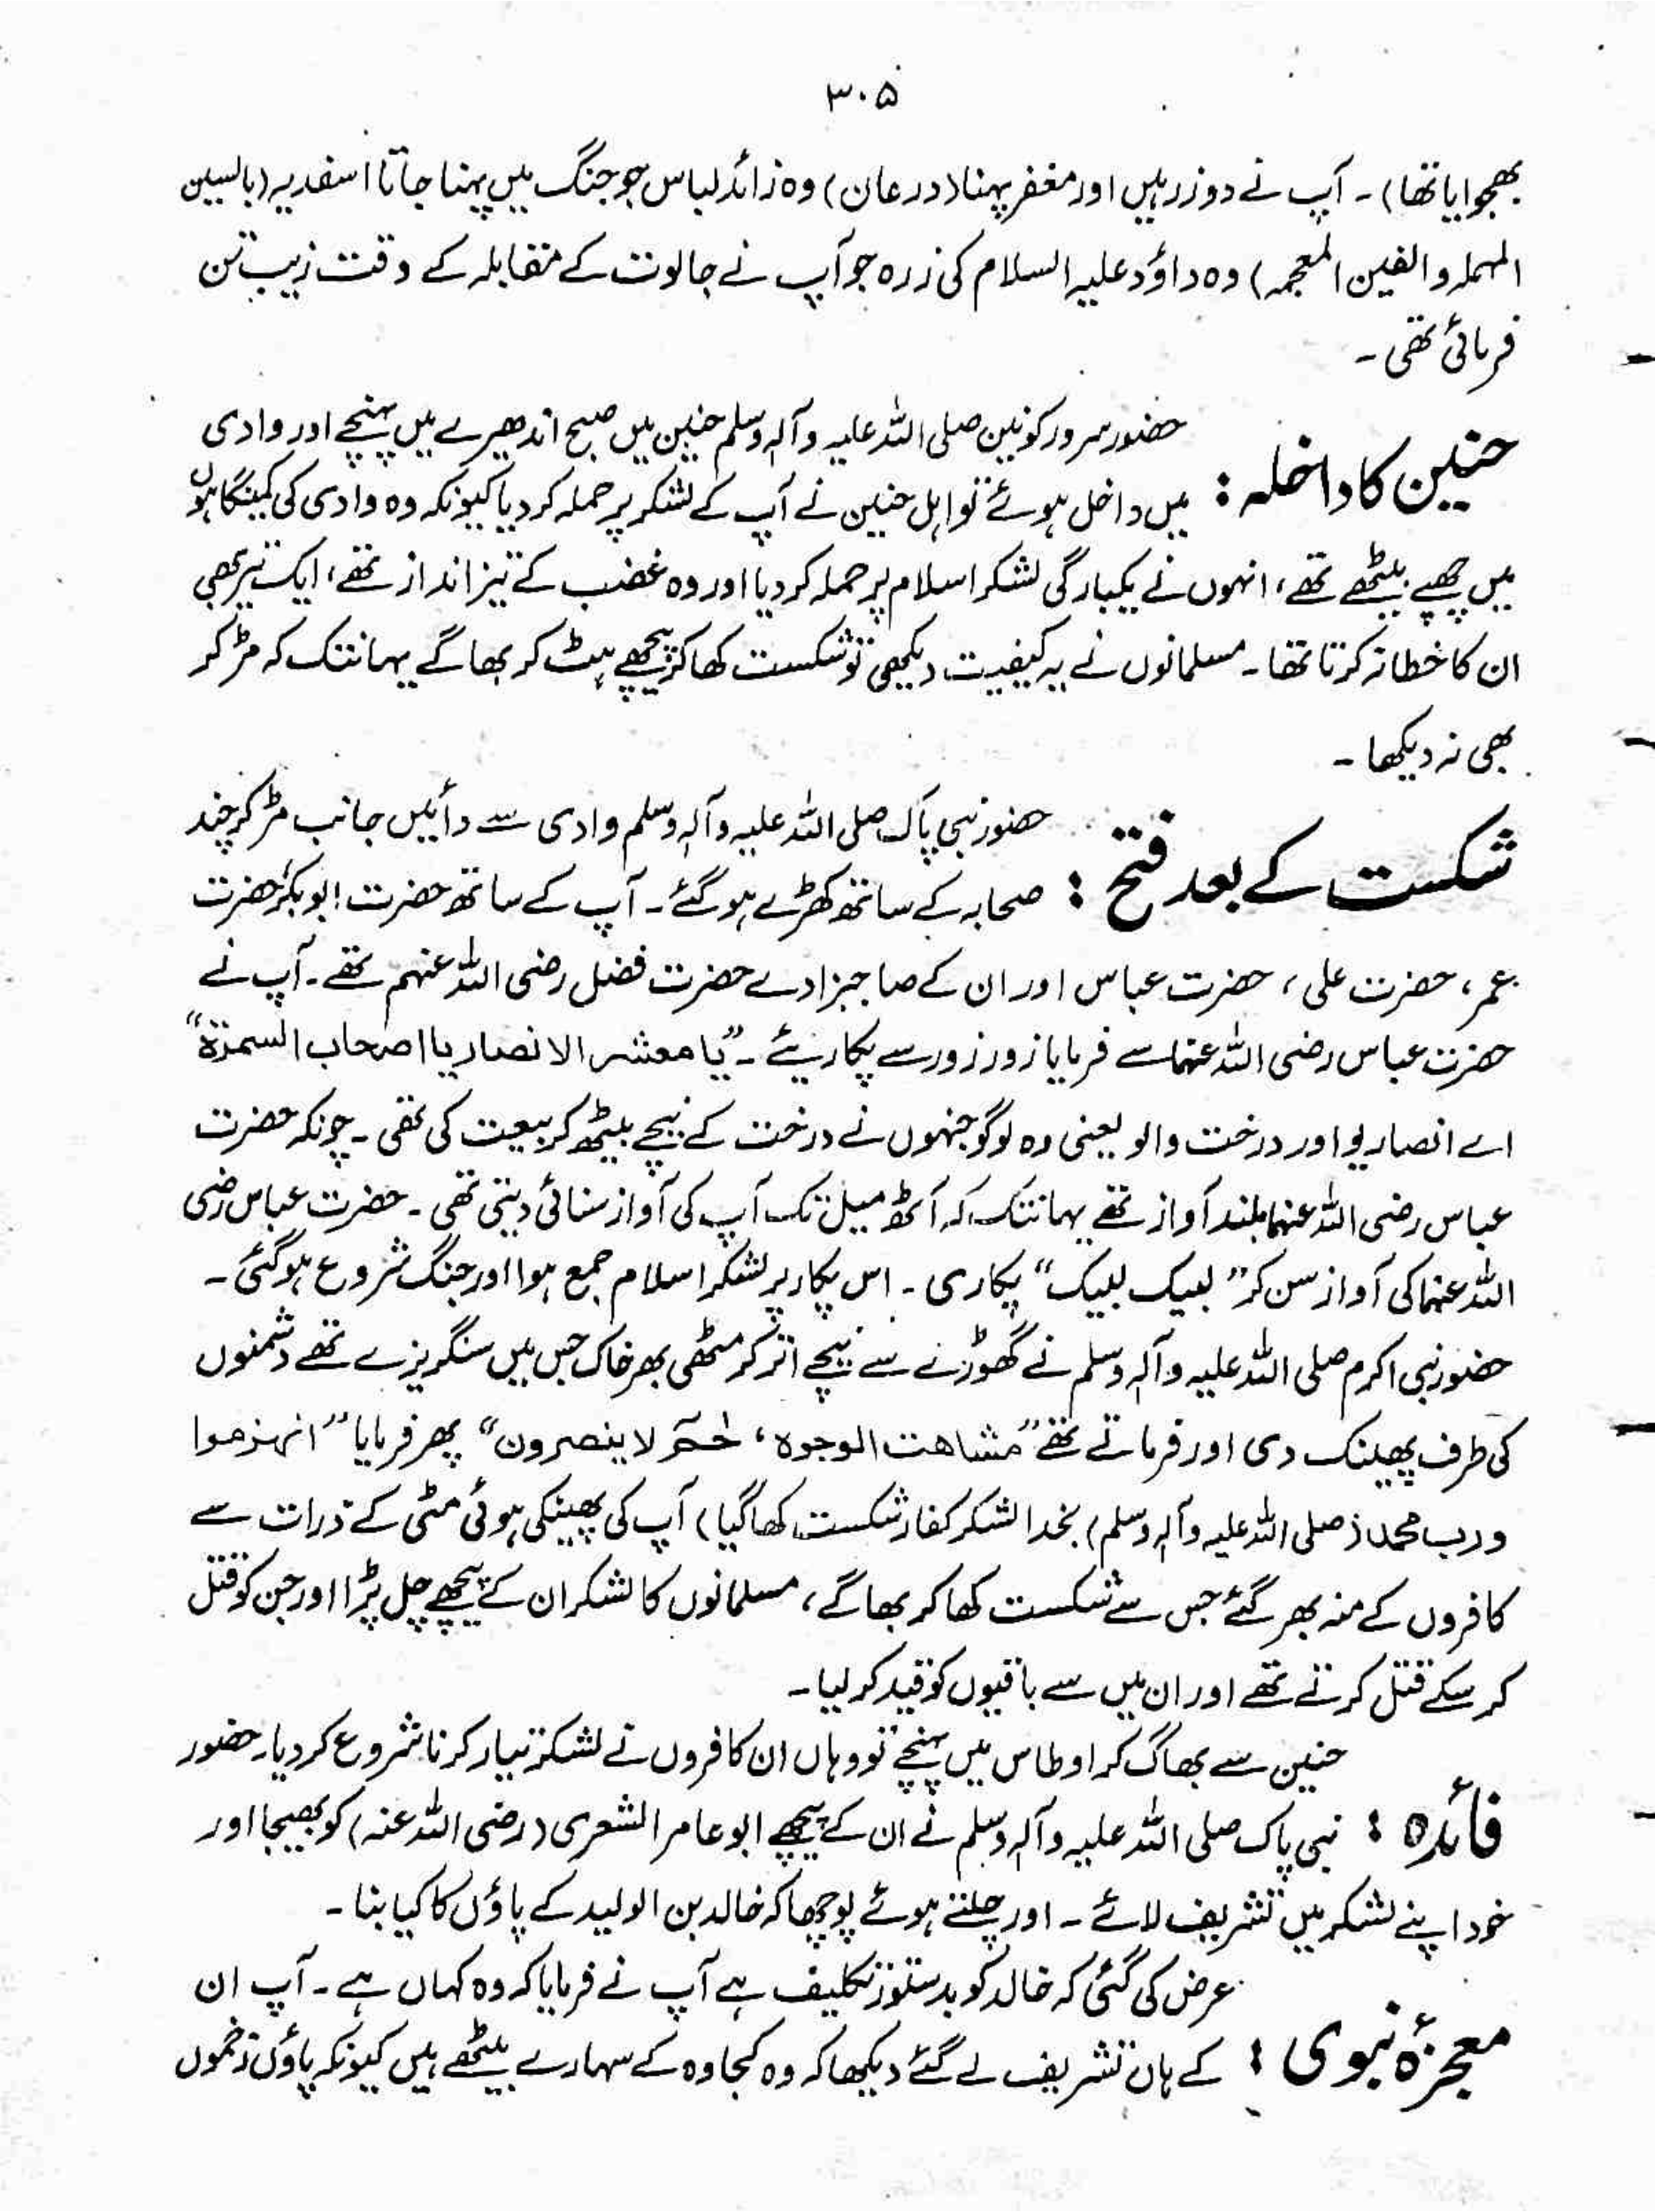 ۳۰۵
بھجوایا تھا)۔ آپ نے دو زرہیں اور مغفر پہنا (درعان) وہ زائد لباس جو جنگ میں پہنا جاتا اسغدیہ (بالسین
المہملہ والغین المعجمہ) وہ داؤد علیہ السلام کی زرہ جو آپ نے جالوت کے مقابلہ کے وقت زیب تن
فرمائی تھی۔
حنین کا داخلہ : حضور سرور کونین صلی اللہ علیہ وآلہٖ وسلم حنین میں صبح اندھیرے میں پہنچے اور وادی
میں داخل ہوئے تو اہل حنین نے آپ کے لشکر پر حملہ کردیا کیونکہ وہ وادی کی کمینگاہوں
میں چھپے بیٹھے تھے، انہوں نے یکبارگی لشکر اسلام پر حملہ کردیا اور وہ غضب کے تیز انداز تھے، ایک تیر بھی
ان کا خطا نہ کرتا تھا۔ مسلمانوں نے یہ کیفیت دیکھی تو شکست کھا کر پیچھے ہٹ کر بھاگے یہانتک کہ مڑ کر
بھی نہ دیکھا۔
شکست کے بعد فتح : حضور نبی پاک صلی اللہ علیہ وآلہٖ وسلم وادی سے دائیں جانب مڑ کر چند
صحابہ کے ساتھ کھڑے ہوگئے۔ آپ کے ساتھ حضرت ابوبکر حضرت
عمر، حضرت علی، حضرت عباس اور ان کے صاحبزادے حضرت فضل رضی اللہ عنہم تھے۔ آپ نے
حضرت عباس رضی اللہ عنہما سے فرمایا زور زور سے پکاریئے۔ ”یا معشر الانصار یا اصحاب السمرۃ“
اے انصاریو اور درخت والو یعنی وہ لوگو جنہوں نے درخت کے نیچے بیٹھ کر بیعت کی تھی۔ چونکہ حضرت
عباس رضی اللہ عنہما بلند آواز تھے یہانتک کہ آٹھ میل تک آپ کی آواز سنائی دیتی تھی۔ حضرت عباس رضی
اللہ عنہما کی آواز سن کر ”لبیک لبیک“ پکاری۔ اس پکار پر لشکر اسلام جمع ہوا اور جنگ شروع ہوگئی۔
حضور نبی اکرم صلی اللہ علیہ وآلہٖ وسلم نے گھوڑے سے نیچے اتر کر مٹھی بھر خاک جس میں سنگریزے تھے دشمنوں
کی طرف پھینک دی اور فرماتے تھے ”مشاھت الوجوہ، حٰمٓ لا ینصرون“ پھر فرمایا ”انہزموا
ورب محمد (صلی اللہ علیہ وآلہٖ وسلم) بخدا لشکر کفار شکست کھا گیا) آپ کی پھینکی ہوئی مٹی کے ذرات سے
کافروں کے منہ بھر گئے جس سے شکست کھا کر بھاگے، مسلمانوں کا لشکر ان کے پیچھے چل پڑا اور جن کو قتل
کر سکے قتل کرتے تھے اور ان میں سے باقیوں کو قید کر لیا۔
حنین سے بھاگ کر اوطاس میں پہنچے تو وہاں ان کافروں نے لشکر تیار کرنا شروع کردیا۔ حضور
فائدہ : نبی پاک صلی اللہ علیہ وآلہٖ وسلم نے ان کے پیچھے ابو عامر الشعری (رضی اللہ عنہ) کو بھیجا اور
خود اپنے لشکر میں تشریف لائے۔ اور چلتے ہوئے پوچھا کہ خالد بن الولید کے پاؤں کا کیا بنا۔
عرض کی گئی کہ خالد کو بدستور تکلیف ہے آپ نے فرمایا کہ وہ کہاں ہے۔ آپ ان
معجزۂ نبوی : کے ہاں تشریف لے گئے دیکھا کہ وہ کجاوہ کے سہارے بیٹھے ہیں کیونکہ پاؤں زخموں